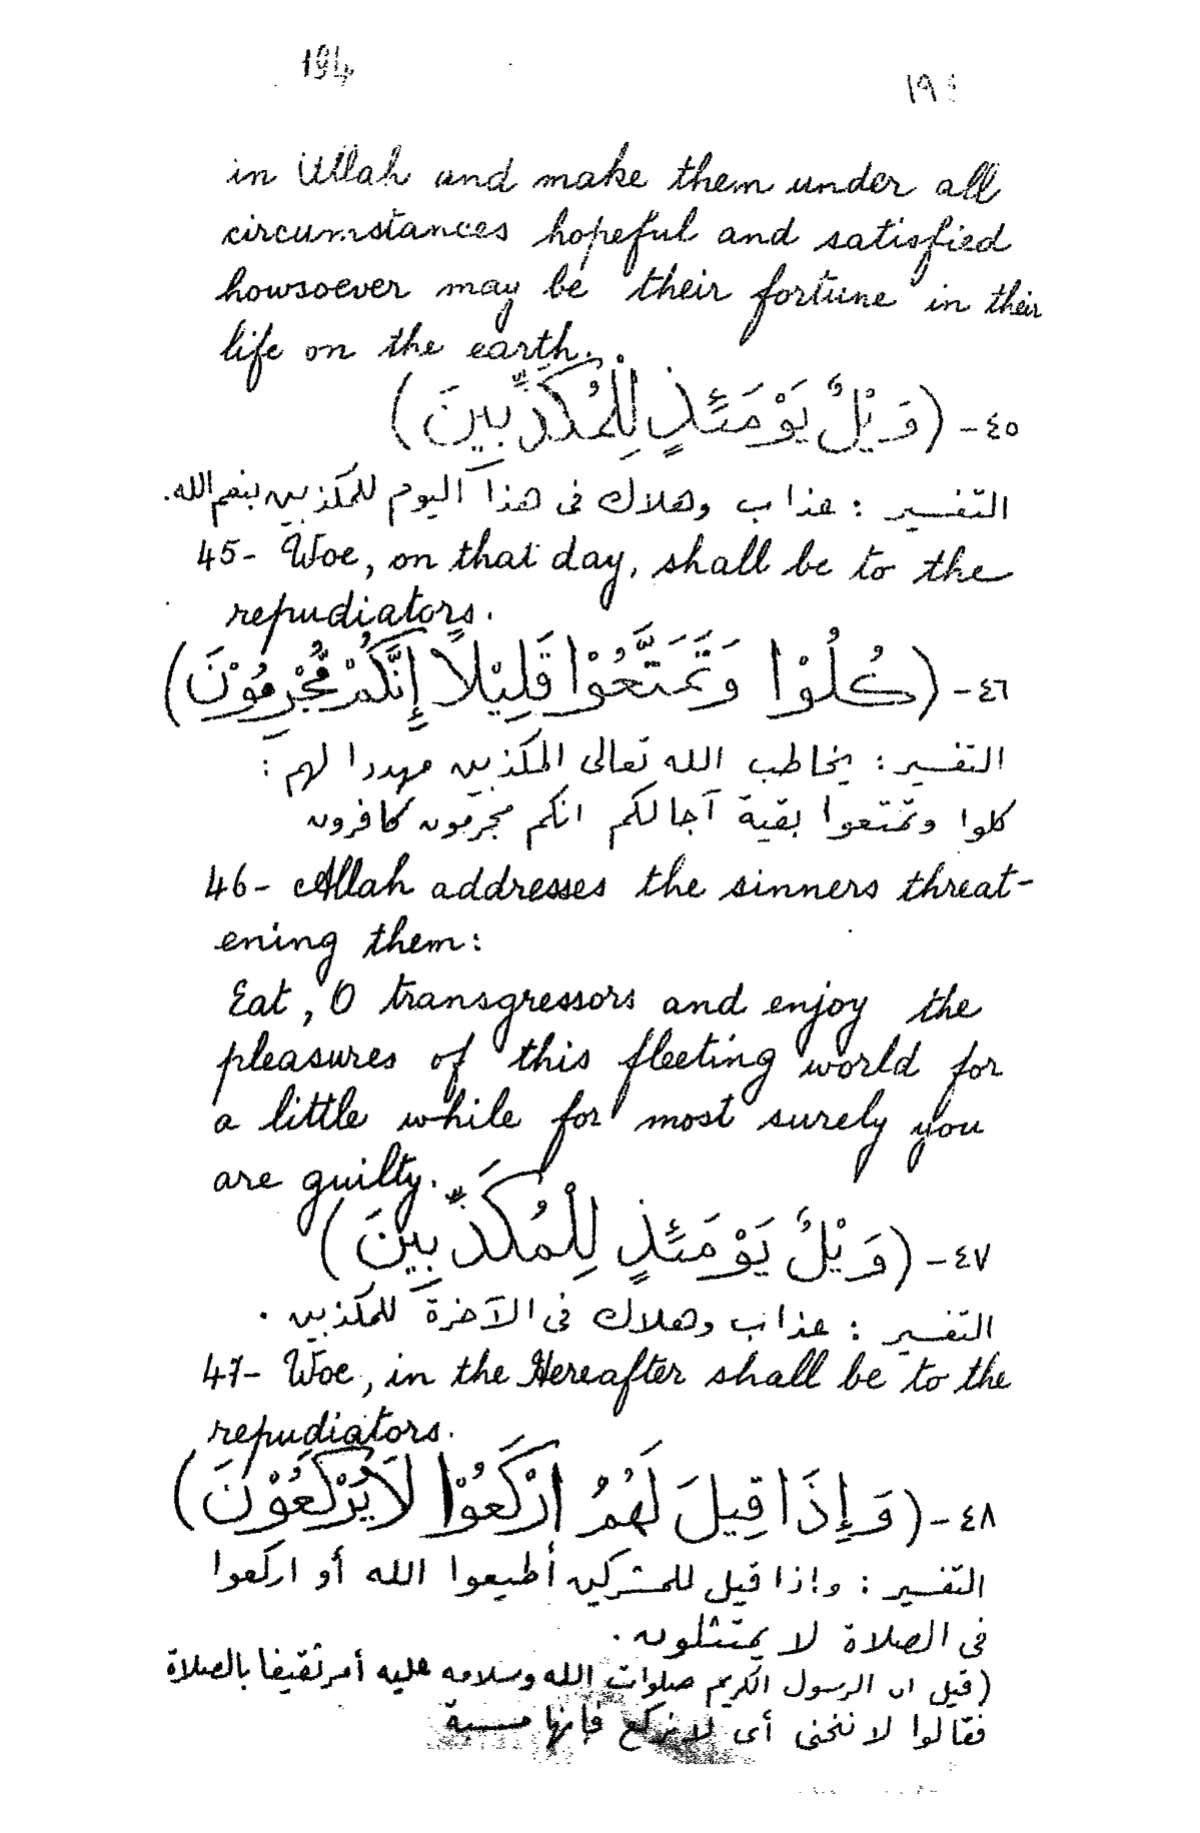 194
in Allah and make them under all
circumstances hopeful and satisfied
howsoever may be their fortune in their
life on the earth.
٤٥- (وَيْلٌ يَوْمَئِذٍ لِلْمُكَذِّبِينَ)
التفسير : عذاب وهلاك فى هذا اليوم للمكذبين بنعم الله.
45- Woe, on that day, shall be to the
repudiators.
٤٦- (كُلُوْا وَتَمَتَّعُوْا قَلِيْلًا إِنَّكُمْ مُّجْرِمُوْنَ)
التفسير : يخاطب الله تعالى المكذبين مهددا لهم :
كلوا وتمتعوا بقية آجالكم انكم مجرمون كافرون
46- Allah addresses the sinners threat-
ening them:
Eat, O transgressors and enjoy the
pleasures of this fleeting world for
a little while for most surely you
are guilty.
٤٧- (وَيْلٌ يَوْمَئِذٍ لِلْمُكَذِّبِينَ)
التفسير : عذاب وهلاك فى الآخرة للمكذبين .
47- Woe, in the Hereafter shall be to the
repudiators.
٤٨- (وَإِذَا قِيلَ لَهُمُ ارْكَعُوْا لَا يَرْكَعُوْنَ)
التفسير : وإذا قيل للمشركين أطيعوا الله أو اركعوا
فى الصلاة لا يمتثلون .
(قيل ان الرسول الكريم صلوات الله وسلامه عليه أمر ثقيفا بالصلاة
فقالوا لا ننحنى أى لا نركع فإنها مسبة